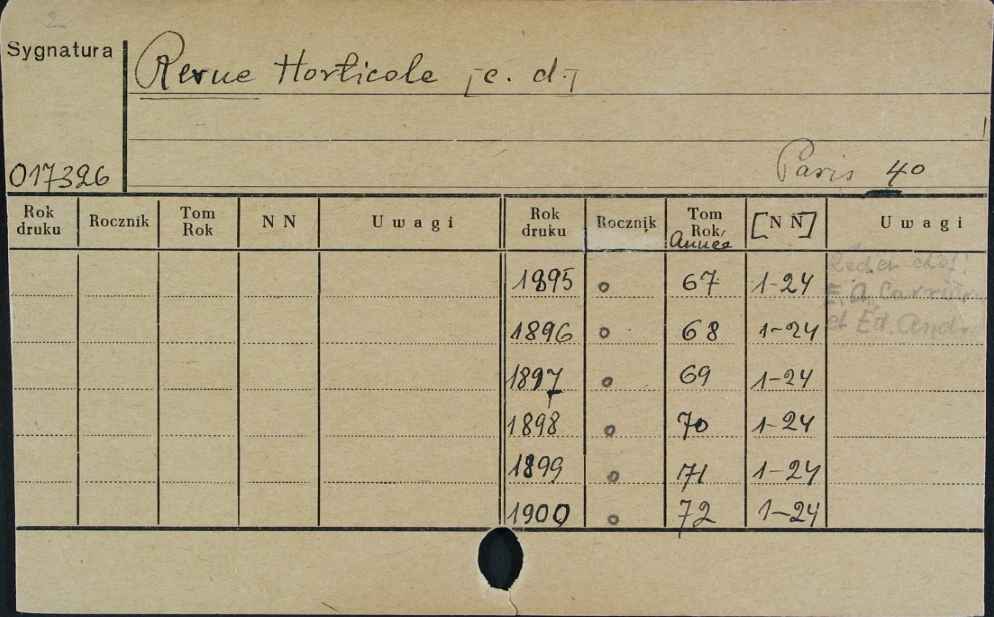 2
Sygnatura
Revue Horticole [c. d.]
017326
Paris 4o
Rok druku Rocznik Tom Rok N N Uwagi Rok druku Rocznik Tom Rok/ Année [N N] Uwagi
1895 o 67 1-24 Red. en chef:
1896 o 68 1-24 E. A. Carrière
et Ed. André
1897 o 69 1-24
1898 o 70 1-24
1899 o 71 1-24
1900 o 72 1-24